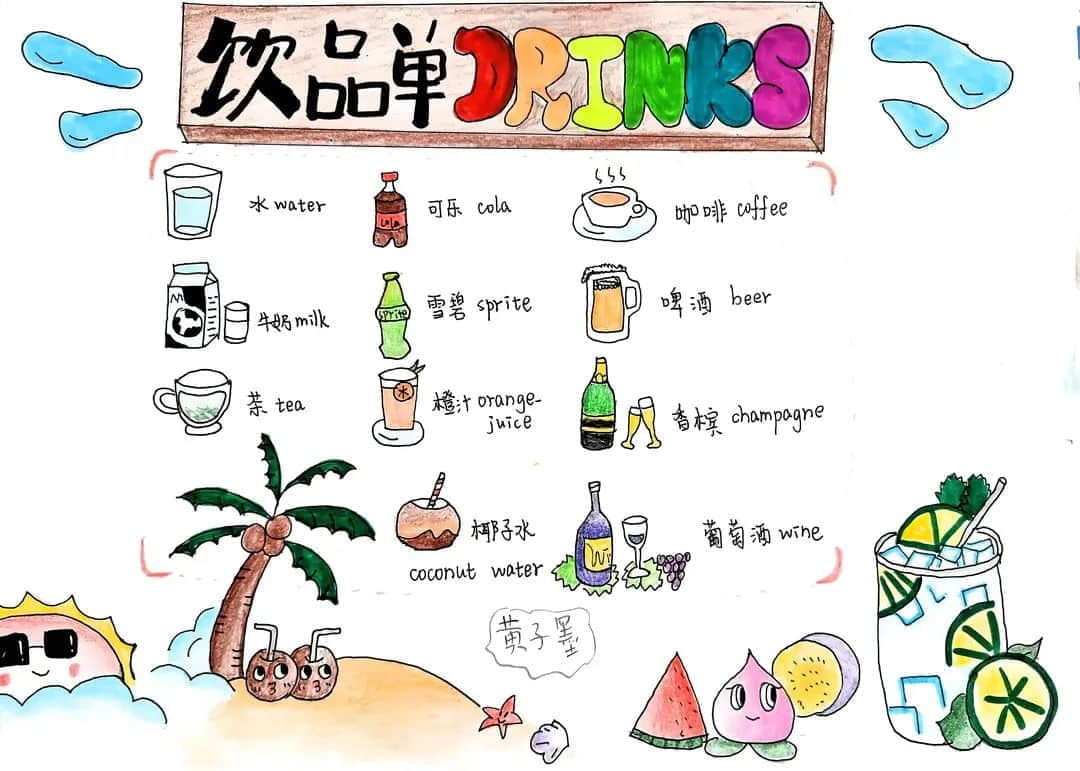 饮品单 DRINKS
水 water
可乐 cola
咖啡 coffee
cola
牛奶 milk
雪碧 sprite
sprite
啤酒 beer
茶 tea
橙汁 orange-
juice
香槟 champagne
椰子水
coconut water
葡萄酒 wine
Wi
黄子墨